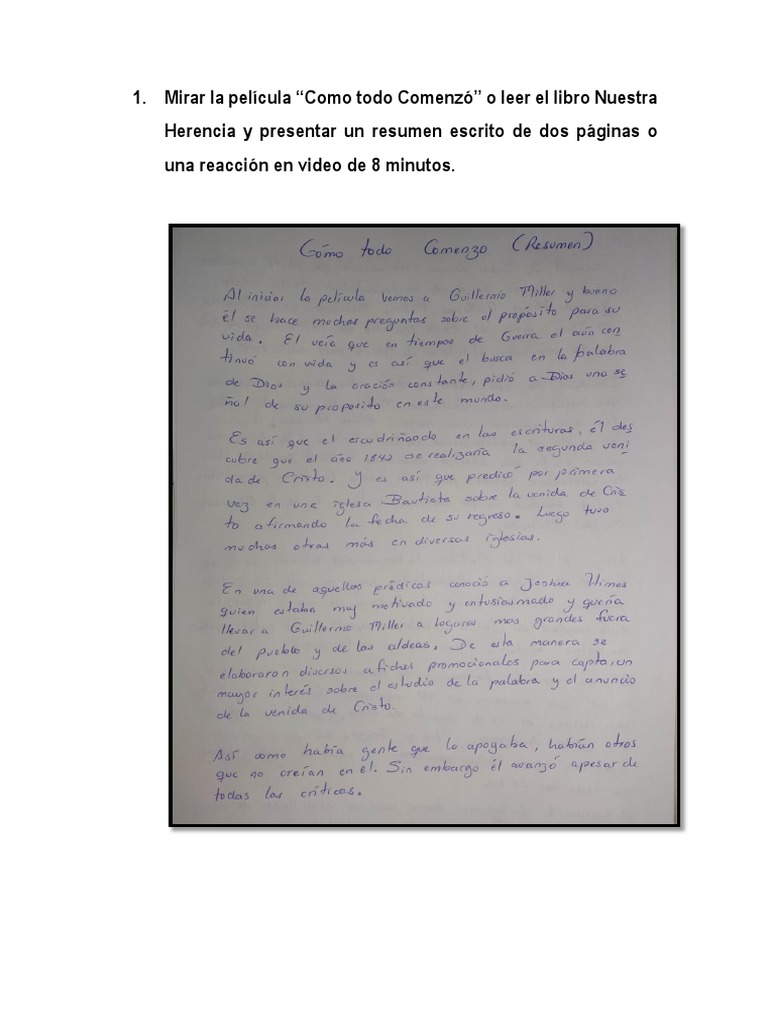 1. Mirar la película “Como todo Comenzó” o leer el libro Nuestra
Herencia y presentar un resumen escrito de dos páginas o
una reacción en video de 8 minutos.
Cómo todo Comenzo (Resumen)
Al iniciar la película vemos a Guillermo Miller y bueno
él se hace muchas preguntas sobre el propósito para su
vida. El veía que en tiempos de Guerra el aún con
tinuó con vida y es así que el busca en la palabra
de Dios y la oración constante, pidió a Dios una se
ñal de su proposito en este mundo.
Es así que el escudriñando en las escrituras, él des
cubre que el año 1842 se realizaría la segunda veni
da de Cristo. Y es así que predicó por primera
vez en una iglesia Bautista sobre la venida de Cris
to afirmando la fecha de su regreso. Luego tuvo
muchas otras más en diversas iglesias.
En una de aquellas prédicas conoció a Joshua Himes
quien estaba muy motivado y entusiasmado y quería
llevar a Guillermo Miller a lugares mas grandes fuera
del pueblo y de las aldeas. De esta manera se
elaboraron diversos afiches promocionales para captar un
mayor interés sobre el estudio de la palabra y el anuncio
de la venida de Cristo.
Así como había gente que lo apoyaba, habían otros
que no creían en él. Sin embargo él avanzó apesar de
todas las críticas.